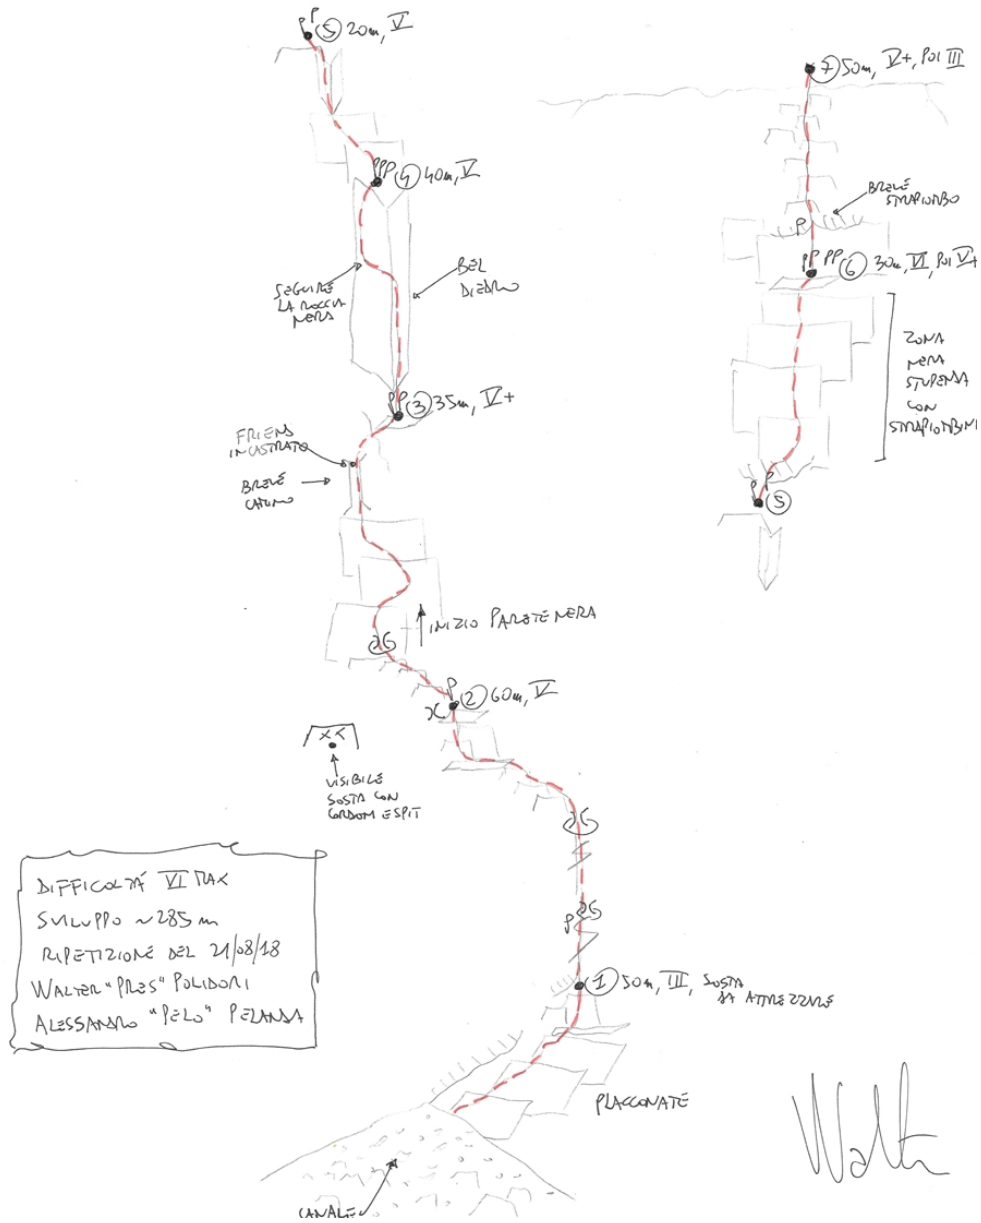 P P ⑤ 20m, V
PPP ④ 40m, V
SEGUIRE
LA ROCCIA
NERA
BEL
DIEDRO
PP ③ 35m, V+
FRIEND
INCASTRATO
BREVE
CAMINO
INIZIO PARETE NERA
P
② 60m, V
XX
VISIBILE
SOSTA CON
CORDONI E SPIT
P
① 50m, III, SOSTA
DA ATTREZZARE
PLACCONATE
CANALE
DIFFICOLTÁ VI MAX
SVILUPPO ~285 m
RIPETIZIONE DEL 21/08/18
WALTER "PRES" POLIDORI
ALESSANDRO "PELO" PELANDA
⑦ 50m, V+, POI III
BREVE
STRAPIOMBO
P
PP PP ⑥ 30m, VI, POI V+
ZONA
NERA
STUPENDA
CON
STRAPIOMBINI
P P
⑤
Walter